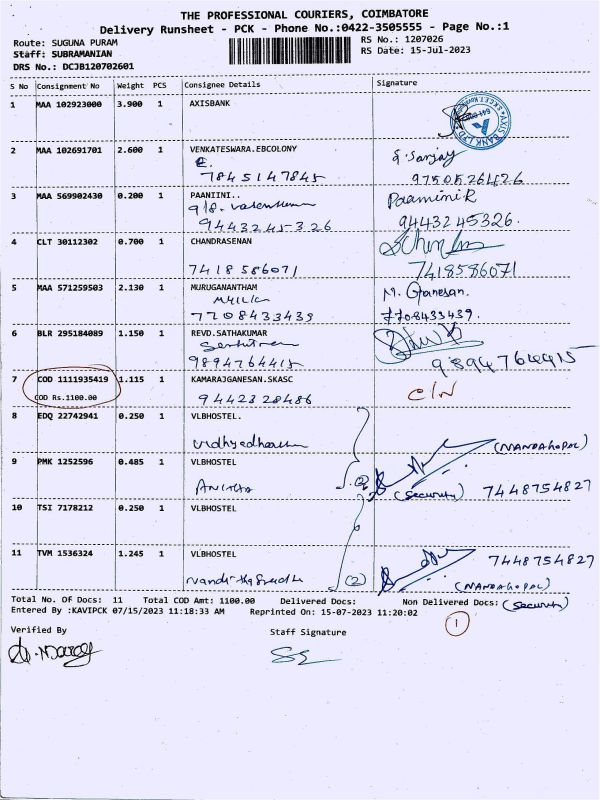 THE PROFESSIONAL COURIERS, COIMBATORE
Delivery Runsheet - PCK - Phone No.:0422-3505555 - Page No.:1
Route: SUGUNA PURAM RS No.: 1207026
Staff: SUBRAMANIAN RS Date: 15-Jul-2023
DRS No.: DCJB120702601
S No Consignment No Weight PCS Consignee Details Signature
1 MAA 102923000 3.900 1 AXISBANK
AXIS BANK LTD
2 MAA 102691701 2.600 1 VENKATESWARA.EBCOLONY
S. Sanjay
7845147845 97505264126
3 MAA 569902430 0.200 1 PAANIINI.. Paamini R
9443245326 9443245326.
4 CLT 30112302 0.700 1 CHANDRASENAN
7418586071 7418586071
5 MAA 571259503 2.130 1 MURUGANANTHAM M. Ganesan.
7708433439 7708433439.
6 BLR 295184089 1.150 1 REVD.SATHAKUMAR
9894764415 9894764415
7 COD 1111935419 1.115 1 KAMARAJGANESAN.SKASC
COD Rs.1100.00 9442328486 C/N
8 EDQ 22742941 0.250 1 VLBHOSTEL
Vidhyadharan (NANDAGOPAL)
9 PMK 1252596 0.485 1 VLBHOSTEL
ANITHA (2) (Security) 7448754827
10 TSI 7178212 0.250 1 VLBHOSTEL
11 TVM 1536324 1.245 1 VLBHOSTEL 7448754827
(2) (NANDAGOPAL)
Total No. OF Docs: 11 Total COD Amt: 1100.00 Delivered Docs: Non Delivered Docs: (Security)
Entered By :KAVIPCK 07/15/2023 11:18:33 AM Reprinted On: 15-07-2023 11:20:02
1
Verified By Staff Signature